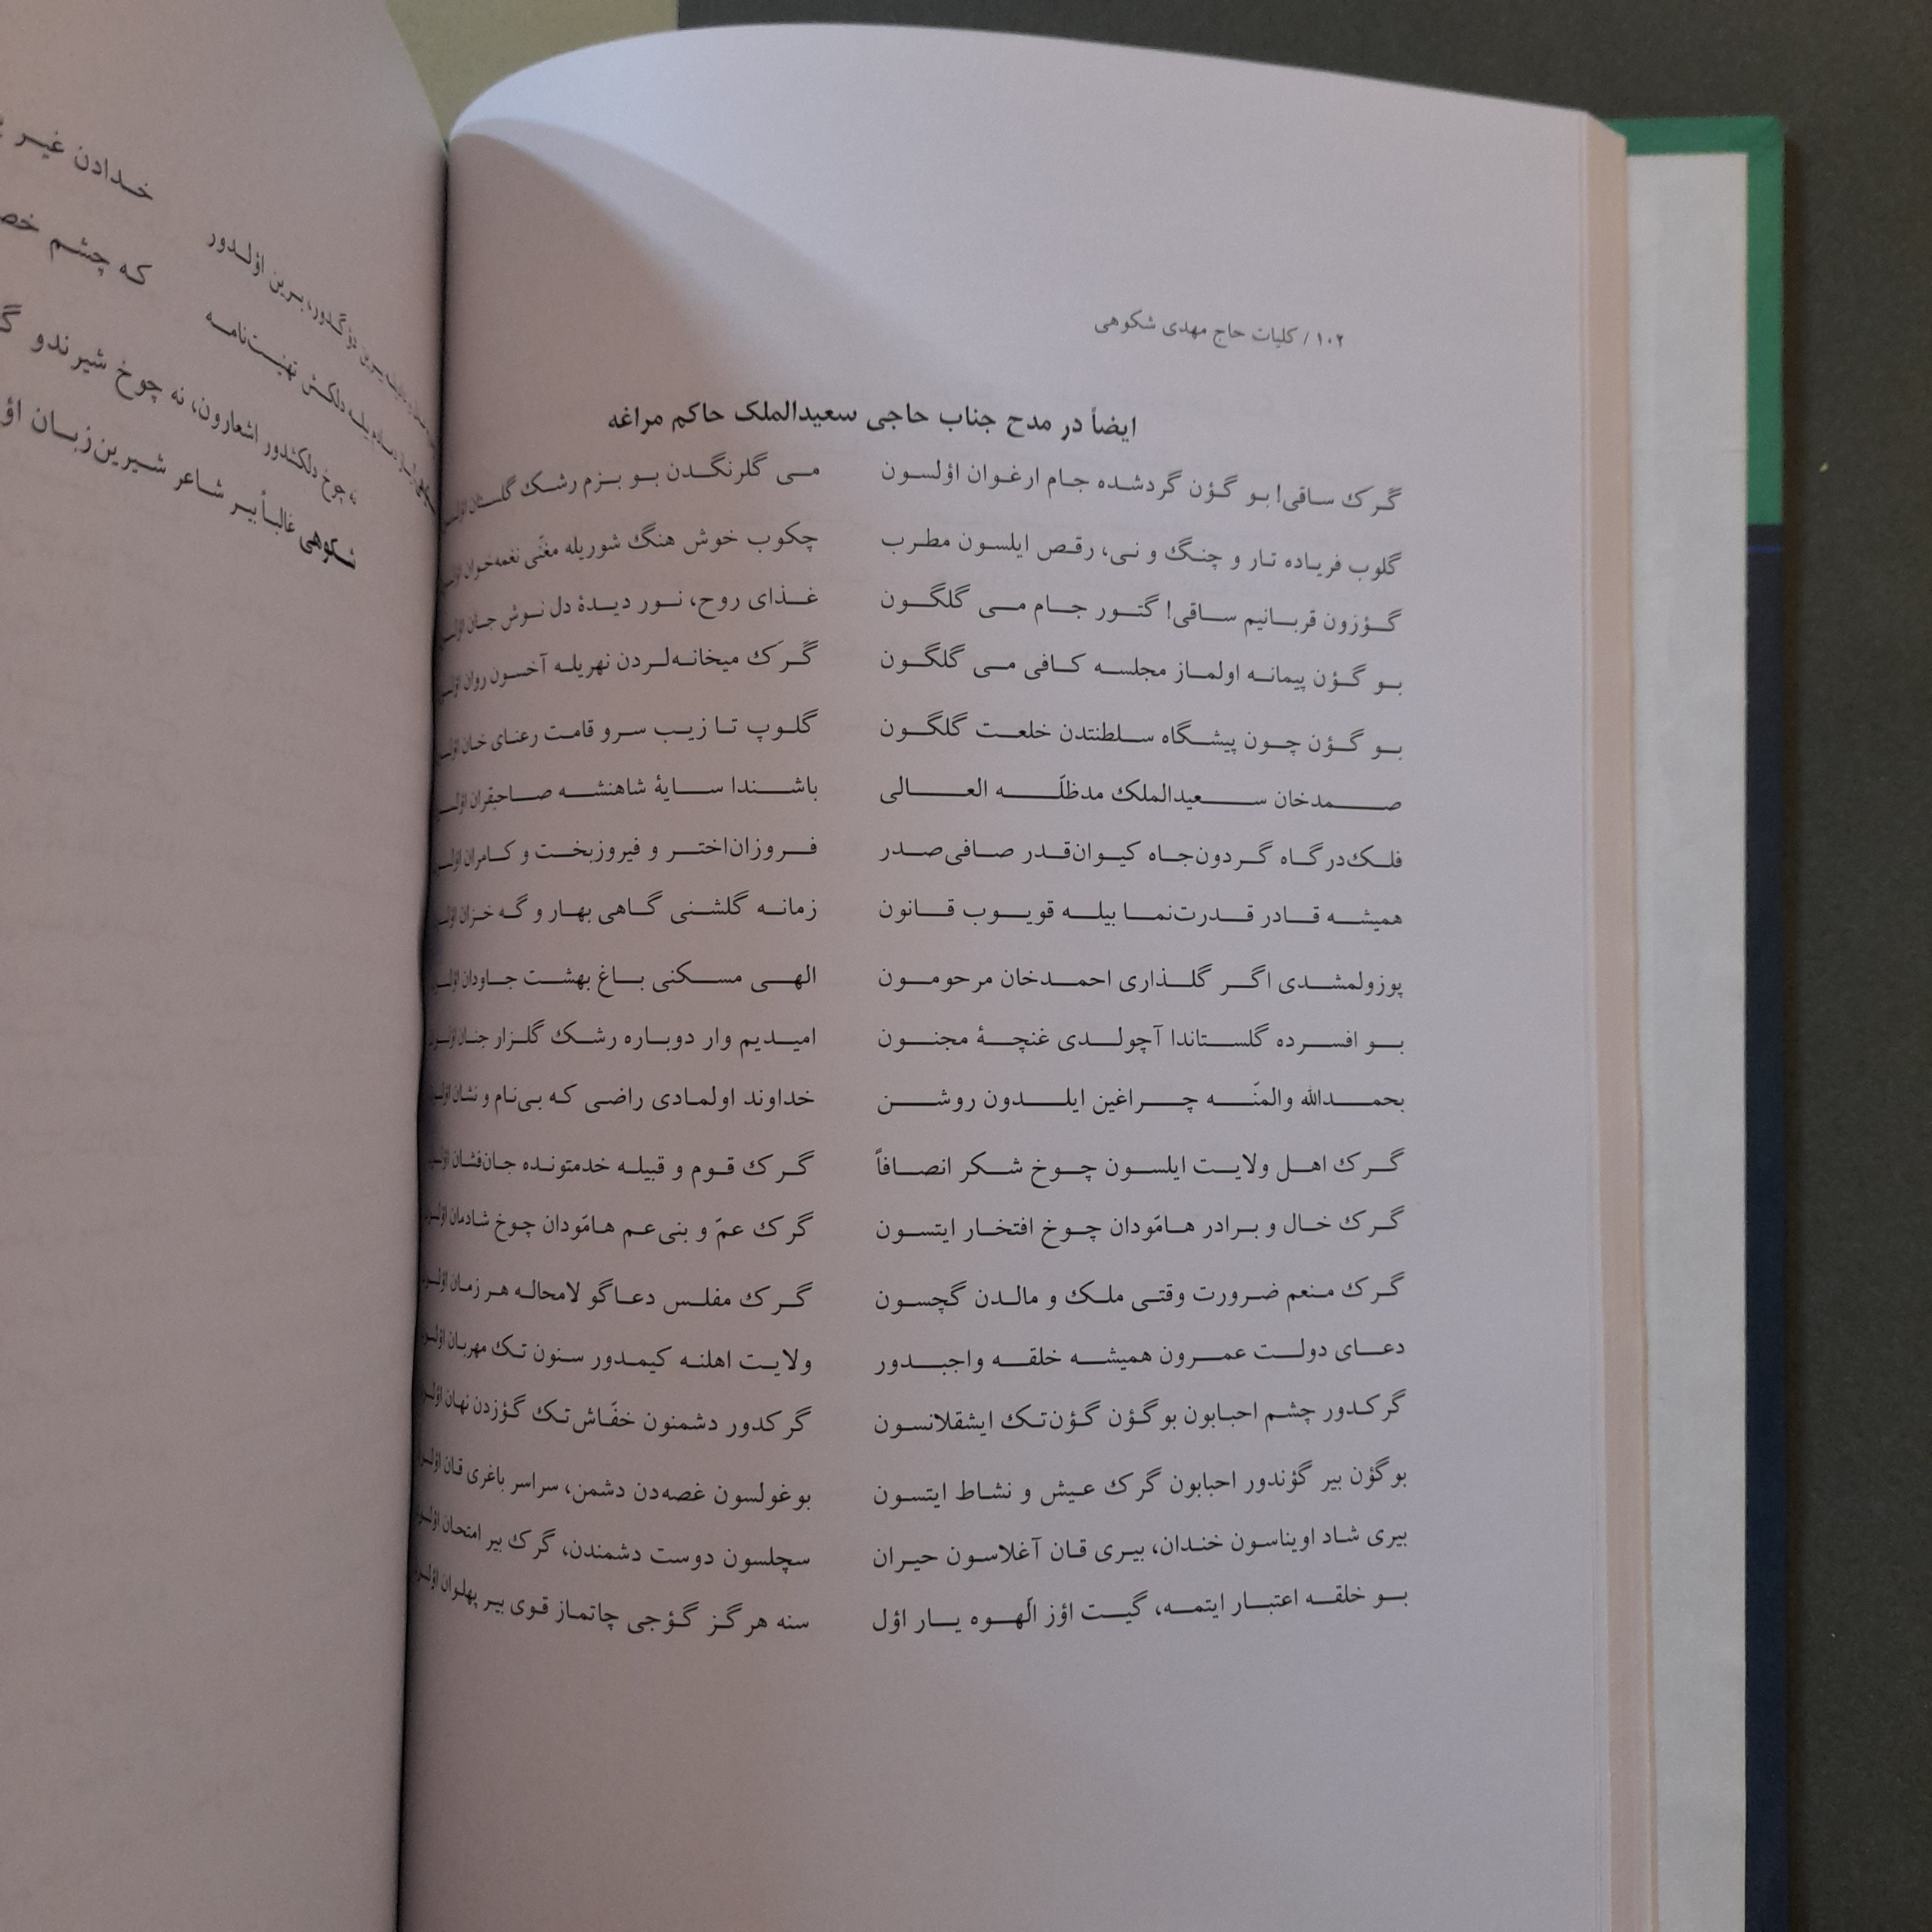 خدادن غیر
که چشم
دؤگدور، بیرین اؤلدور
دلکش تهنیت‌نامه
نه چوخ دلکشدور اشعارون، نه چوخ شیرندو
شکوهی غالباً بیر شاعر شیرین‌زبان
۱۰۲ / کلیات حاج مهدی شکوهی
ایضاً در مدح جناب حاجی سعیدالملک حاکم مراغه
گَرک ساقی! بو گؤن گردشده جام ارغوان اؤلسون می گلرنگدن بو بزم رشک گلستان اؤلسون
گلوب فریاده تار و چنگ و نی، رقص ایلسون مطرب چکوب خوش هنگ شوریله مغنّی نغمه‌خوان اؤلسون
گؤزون قربانیم ساقی! گتور جام می گلگون غذای روح، نور دیدهٔ دل نوش جان اؤلسون
بو گؤن پیمانه اولماز مجلسه کافی می گلگون گَرَک میخانه‌لردن نهریله آخسون روان اؤلسون
بو گؤن چون پیشگاه سلطنتدن خلعت گلگون گلوپ تا زیب سرو قامت رعنای خان اؤلسون
صمدخان سعیدالملک مدظلّه العالی باشندا سایهٔ شاهنشه صاحبقران اؤلسون
فلک‌درگاه گردون‌جاه کیوان‌قدر صافی‌صدر فروزان‌اختر و فیروزبخت و کامران اؤلسون
همیشه قادر قدرت‌نما بیله قویوب قانون زمانه گلشنی گاهی بهار و گه خزان اؤلسون
پوزولمشدی اگر گلذاری احمدخان مرحومون الهی مسکنی باغ بهشت جاودان اؤلسون
بو افسرده گلستاندا آچولدی غنچهٔ مجنون امیدیم وار دوباره رشک گلزار جنان اؤلسون
بحمدالله والمنّه چراغین ایلدون روشن خداوند اولمادی راضی که بی‌نام و نشان اؤلسون
گرک اهل ولایت ایلسون چوخ شکر انصافاً گرک قوم و قبیله خدمتونده جان‌فشان اؤلسون
گرک خال و برادر هامّودان چوخ افتخار ایتسون گرک عمّ و بنی‌عم هامّودان چوخ شادمان اؤلسون
گرک منعم ضرورت وقتی ملک و مالدن گچسون گرک مفلس دعاگو لامحاله هر زمان اؤلسون
دعای دولت عمرون همیشه خلقه واجبدور ولایت اهلنه کیمدور سنون تک مهربان اؤلسون
گرکدور چشم احبابون بو گؤن گؤن‌تک ایشقلانسون گرکدور دشمنون خفّاش‌تک گؤزدن نهان اؤلسون
بو گؤن بیر گؤندور احبابون گرک عیش و نشاط ایتسون بوغولسون غصه‌دن دشمن، سراسر باغری قان اؤلسون
بیری شاد اویناسون خندان، بیری قان آغلاسون حیران سچلسون دوست دشمندن، گرک بیر امتحان اؤلسون
بو خلقه اعتبار ایتمه، گیت اؤز الّهوه یار اؤل سنه هرگز گؤجی چاتماز قوی بیر پهلوان اؤلسون